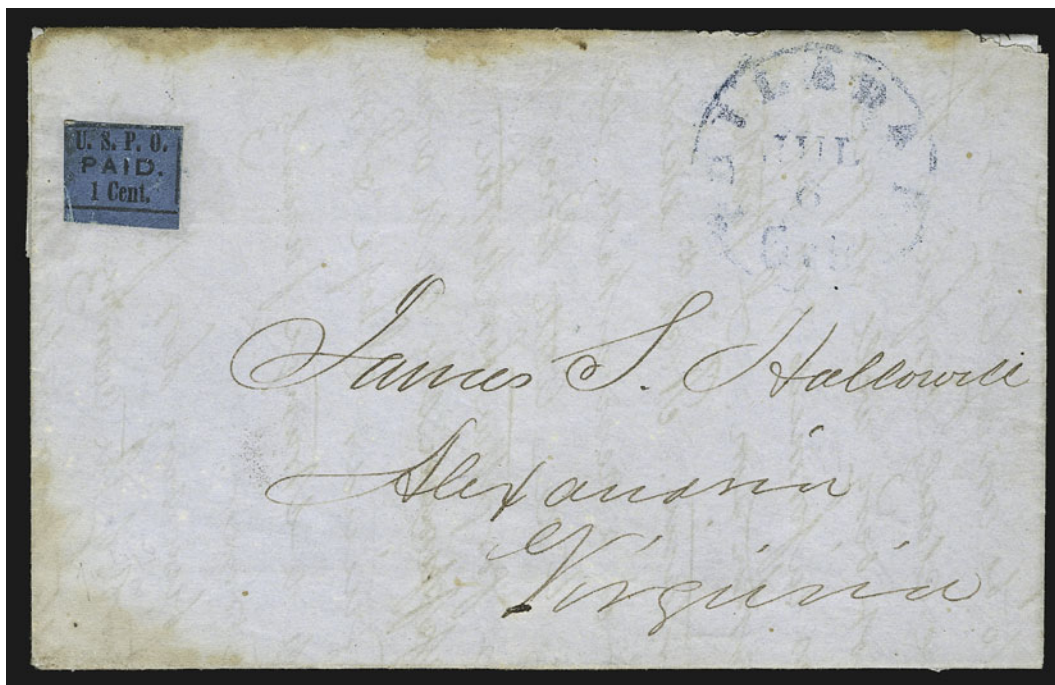 U. S. P. O.
PAID.
1 Cent.
JUL
6
James S. Hallowell
Alexandria
Virginia